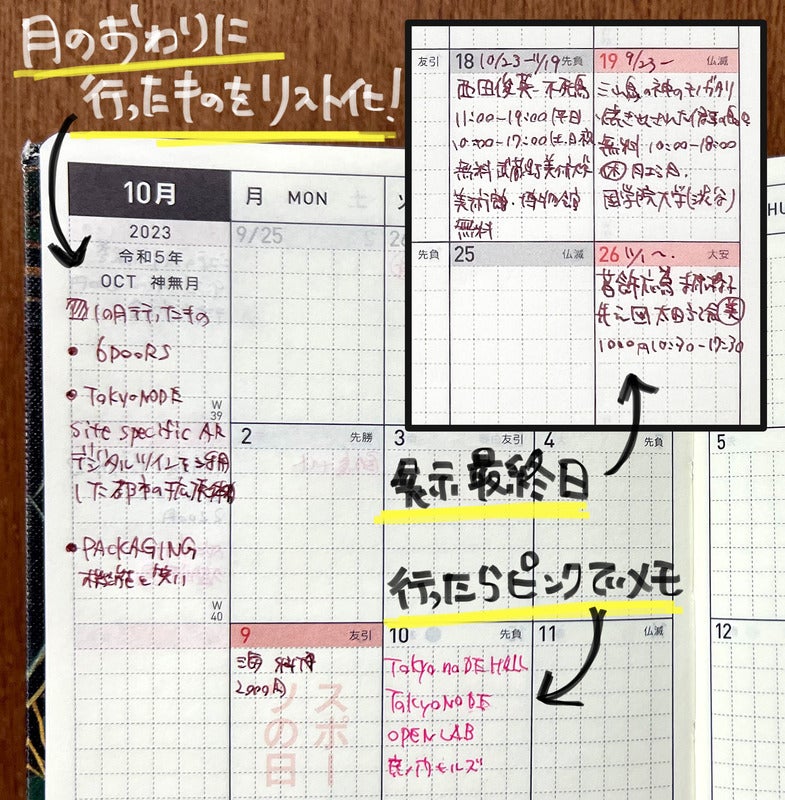 月のおわりに
行ったものをリスト化!
10月
2023
令和5年
OCT 神無月
1の月で行ったもの
• 6DOORS
• TOKYO NODE
Site specific AR
デジタルツインを活用
した都市の拡張
• PACKAGING
機能と笑い
W
39
W
40
月 MON
9/25
26
2 先勝
3 友引
4 先負
5
9 友引
2000円
スポーツの日
10 先負
Tokyo noDE HALL
TOKYO NODE
OPEN LAB
虎ノ門ヒルズ
11 仏滅
12
友引
18 10/23-11/19 先負
西田俊英 不死鳥
11:00-19:00(平日
10:00-17:00(土日祝
無料 武蔵野美術大学
美術館・博物館
無料
19 9/23- 仏滅
三山島の神のモノガタリ
無料 10:00-18:00
㊡ 月
国学院大学(渋谷)
先負
25 仏滅
26 11/1~. 大安
1000円 10:30-17:30
展示最終日
行ったらピンクでメモ